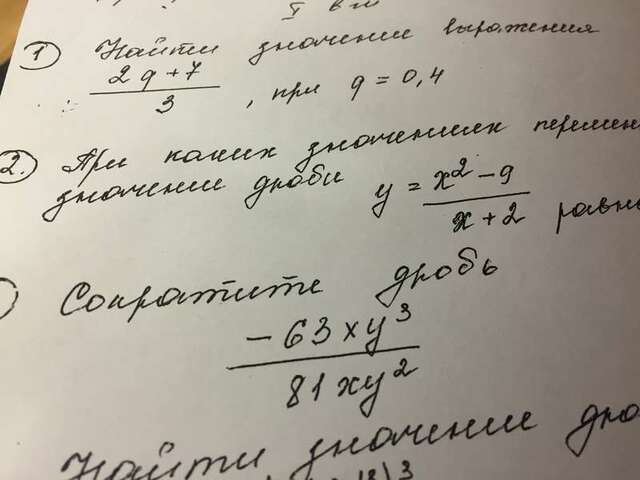 ① Найти значение выражения
2q + 7
3
, при q = 0,4
②. При каких значениях
значение дроби y =
x² - 9
x + 2
равно
Сократите дробь
- 63 x y³
81 x y²
Найти значение дро